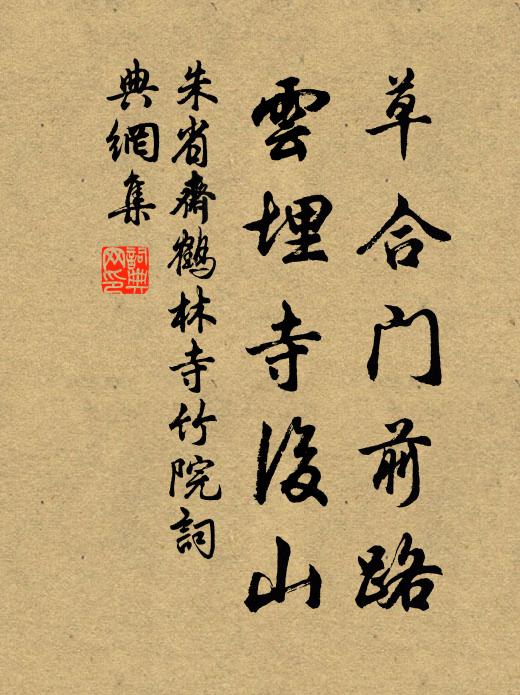 草合門前路
雲埋寺後山
朱省齋鶴林寺竹院詞
典網集
詞典
网印